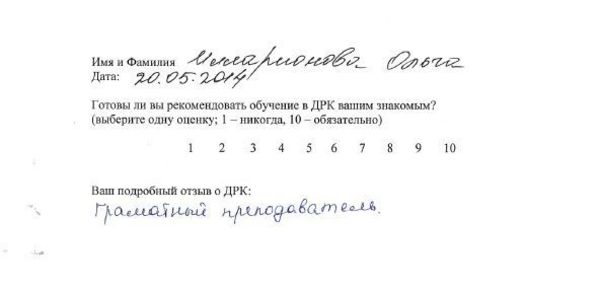 Имя и Фамилия Илларионова Ольга
Дата: 20.05.2014
Готовы ли вы рекомендовать обучение в ДРК вашим знакомым?
(выберите одну оценку; 1 – никогда, 10 – обязательно)
1 2 3 4 5 6 7 8 9 10
Ваш подробный отзыв о ДРК:
Граматный преподаватель.